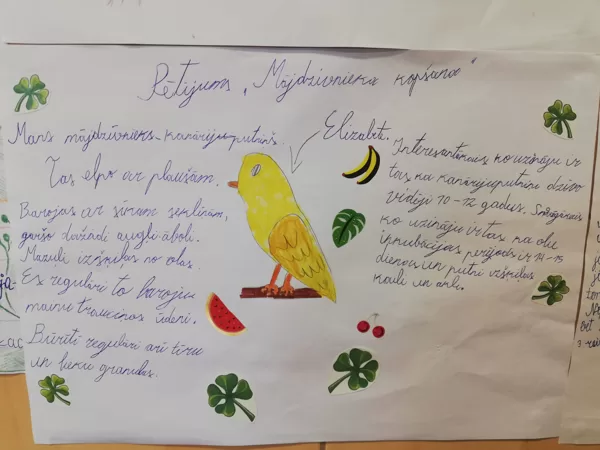 Pētījums „Mājdzīvnieka kopšana"
Mans mājdzīvnieks-kanārijputniņš.
Tas elpo ar plaušām.
Barojas ar sīkām sēkliņām,
garšo dažādi augļi-āboli.
Mazuļi izšķiļas no olas.
Es regulāri to baroju
mainu trauciņos ūdeni.
Būrīti regulāri arī tīru
un lieku granulas.
Elizabete.
Interesantākais ko uzzināju ir
tas ka kanārijputniņi dzīvo
vidēji 10-12 gadus.
ko uzzināju ir tas ka olu
inkubācijas periods ir 14-15
dienas un putni izšķiļas
kaili un akli.